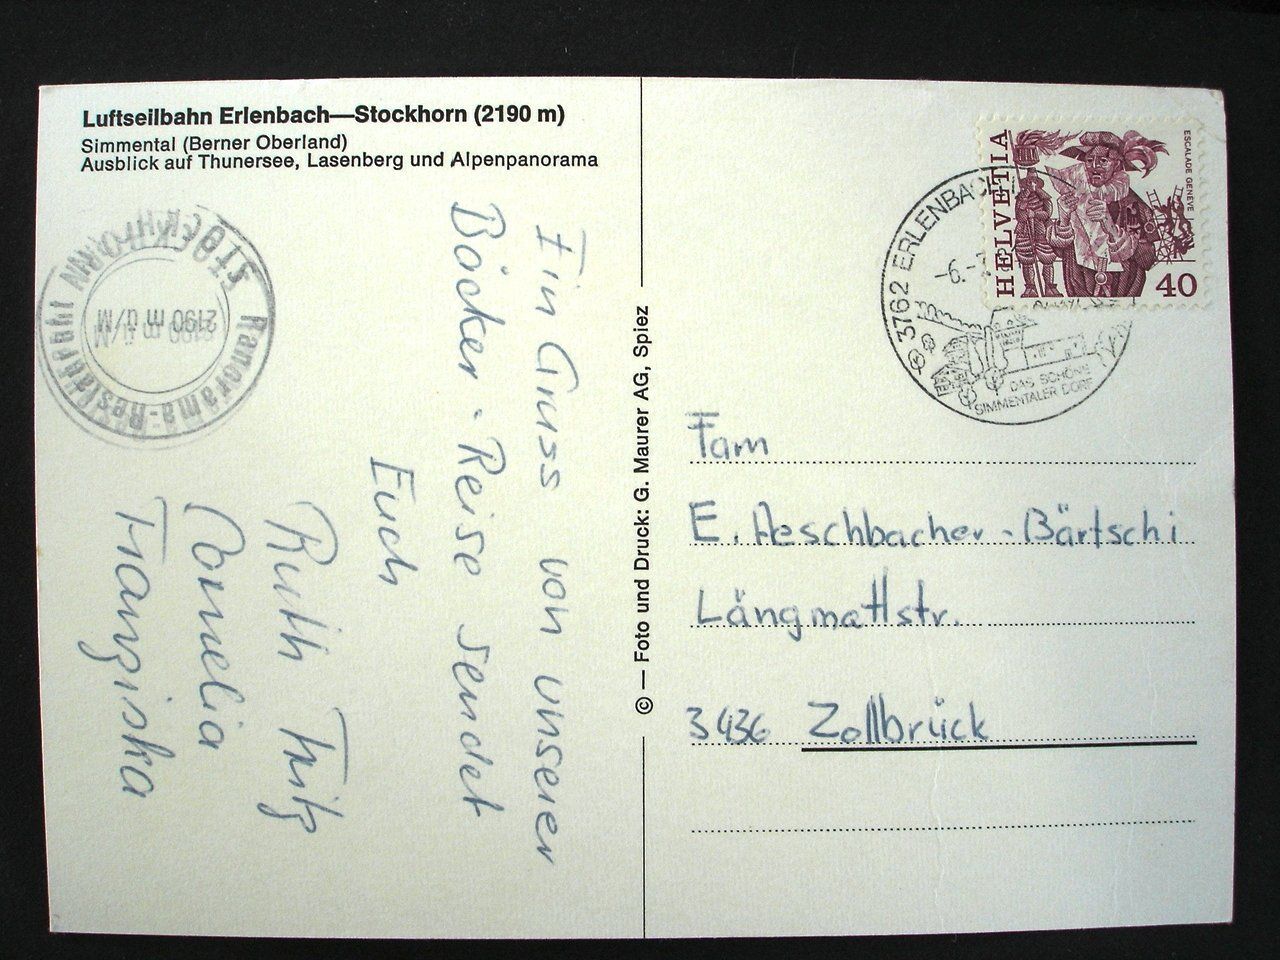 Luftseilbahn Erlenbach—Stockhorn (2190 m)
Simmental (Berner Oberland)
Ausblick auf Thunersee, Lasenberg und Alpenpanorama
STOCKHORN
2190 m ü/M
Panorama-Restaurant
Ein Gruss von unserer
Böcker-Reise sendet
Euch
Ruth Fritz
Cornelia
Franziska
© — Foto und Druck: G. Maurer AG, Spiez
HELVETIA
ESCALADE GENÈVE
40
3762 ERLENBACH
-6.-7
DAS SCHÖNE
SIMMENTALER DORF
Fam
E. Aeschbacher-Bärtschi
Längmattstr.
3436 Zollbrück